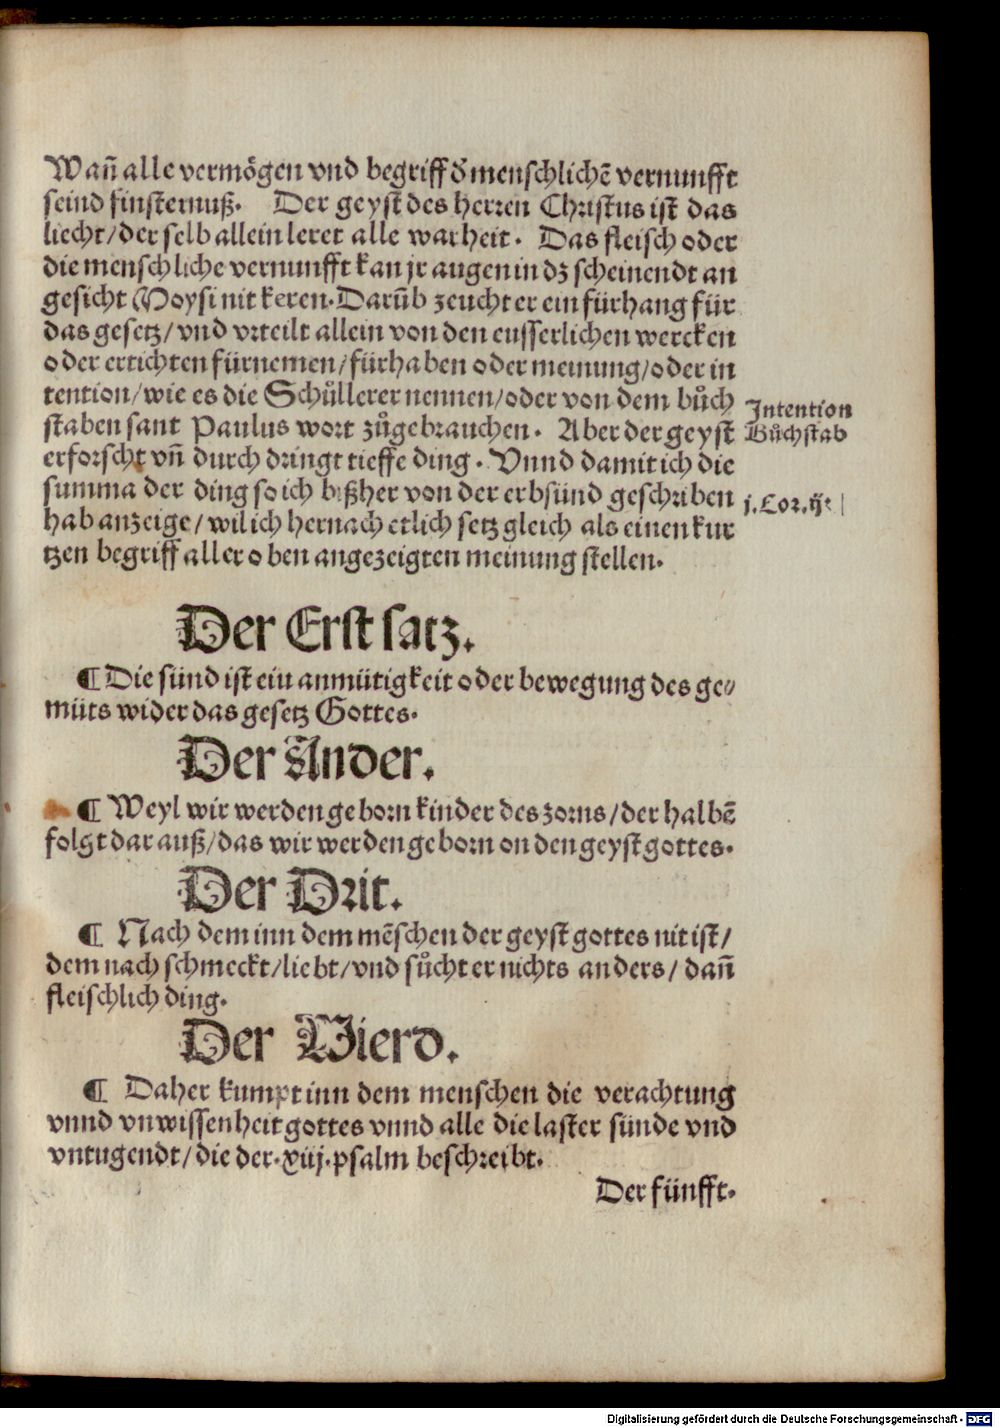 Wañ alle vermögen vnd begriff d̕ menschlichē vernunfft
seind finsternuß. Der geyst des herren Christus ist das
liecht/der selb allein leret alle warheit. Das fleisch oder
die menschliche vernunfft kan jr augen in dz scheinendt an
gesicht Moysi nit keren. Darũb zeucht er ein fürhang für
das gesetz/vnd vrteilt allein von den eusserlichen wercken
oder ertichten fürnemen/fürhaben oder meinung/oder in
tention/wie es die Schůllerer nennen/oder von dem bůch
staben sant Paulus wort zůgebrauchen. Aber der geyst
erforscht vñ durch dringt tieffe ding. Vnnd damit ich die
summa der ding so ich bißher von der erbsünd geschriben
hab anzeige/wil ich hernach etlich setz gleich als einen kur
tzen begriff aller oben angezeigten meinung stellen.
Intention
Bůchstab
j.Cor.ij.
Der Erst satz.
¶ Die sünd ist ein anmütigkeit oder bewegung des ge⸗
müts wider das gesetz Gottes.
Der Ander.
¶ Weyl wir werden geborn kinder des zorns/der halbē
folgt dar auß/das wir werden geborn on den geyst gottes.
Der Drit.
¶ Nach dem inn dem mēschen der geyst gottes nit ist/
dem nach schmeckt/liebt/vnd sůcht er nichts anders/dañ
fleischlich ding.
Der Vierd.
¶ Daher kumpt inn dem menschen die verachtung
vnnd vnwissenheit gottes vnnd alle die laster sünde vnd
vntugendt/die der.xiij.psalm beschreibt.
Der fünfft.
Digitalisierung gefördert durch die Deutsche Forschungsgemeinschaft - DFG